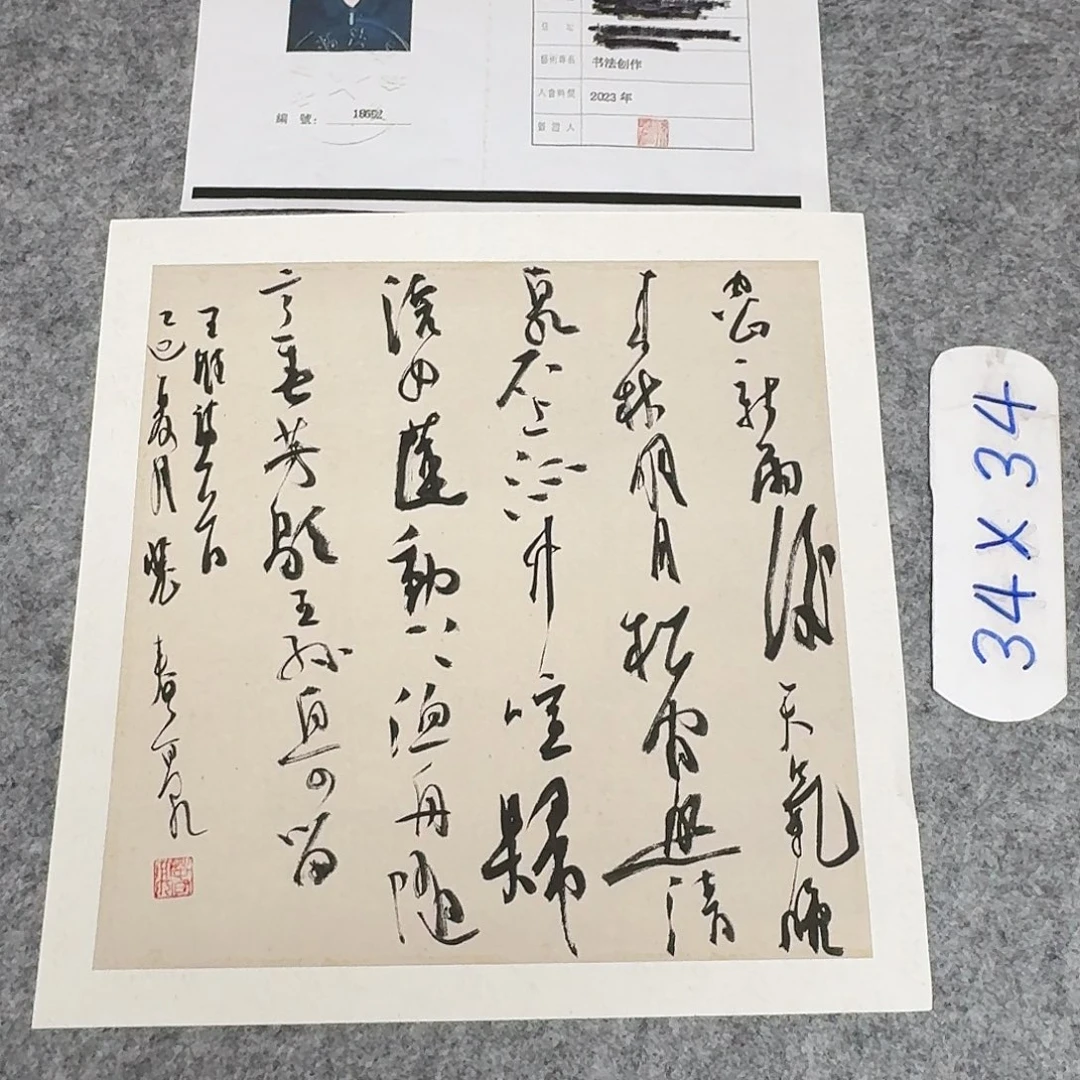 住址
藝術專長 书法创作
入會時間 2023年
簽證人
編號:
空山新雨後天氣晚
来秋明月松間照清
泉石上流竹喧歸
浣女蓮動下漁舟隨
意春芳歇王孫自可留
王維詩一首
乙巳夏月
34X34